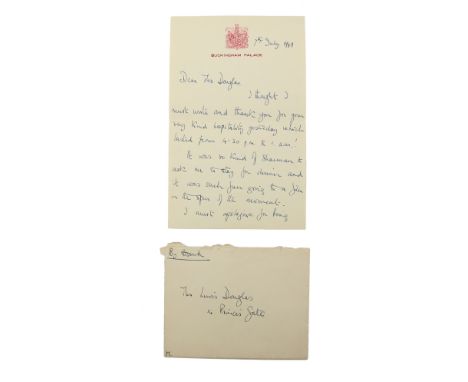 7th July
BUCKINGHAM PALACE
Dear Mrs Douglas
I thought I
must write and thank you for your
very kind hospitality yesterday which
lasted from 4.30 p.m. to 1 a.m!
It was so kind of Sharman to
ask me to stay for dinner and
it was such fun going to a film
on the spur of the moment.
I must apologise for being
By Hand
Mrs Lewis Douglas
14 Princes Gate